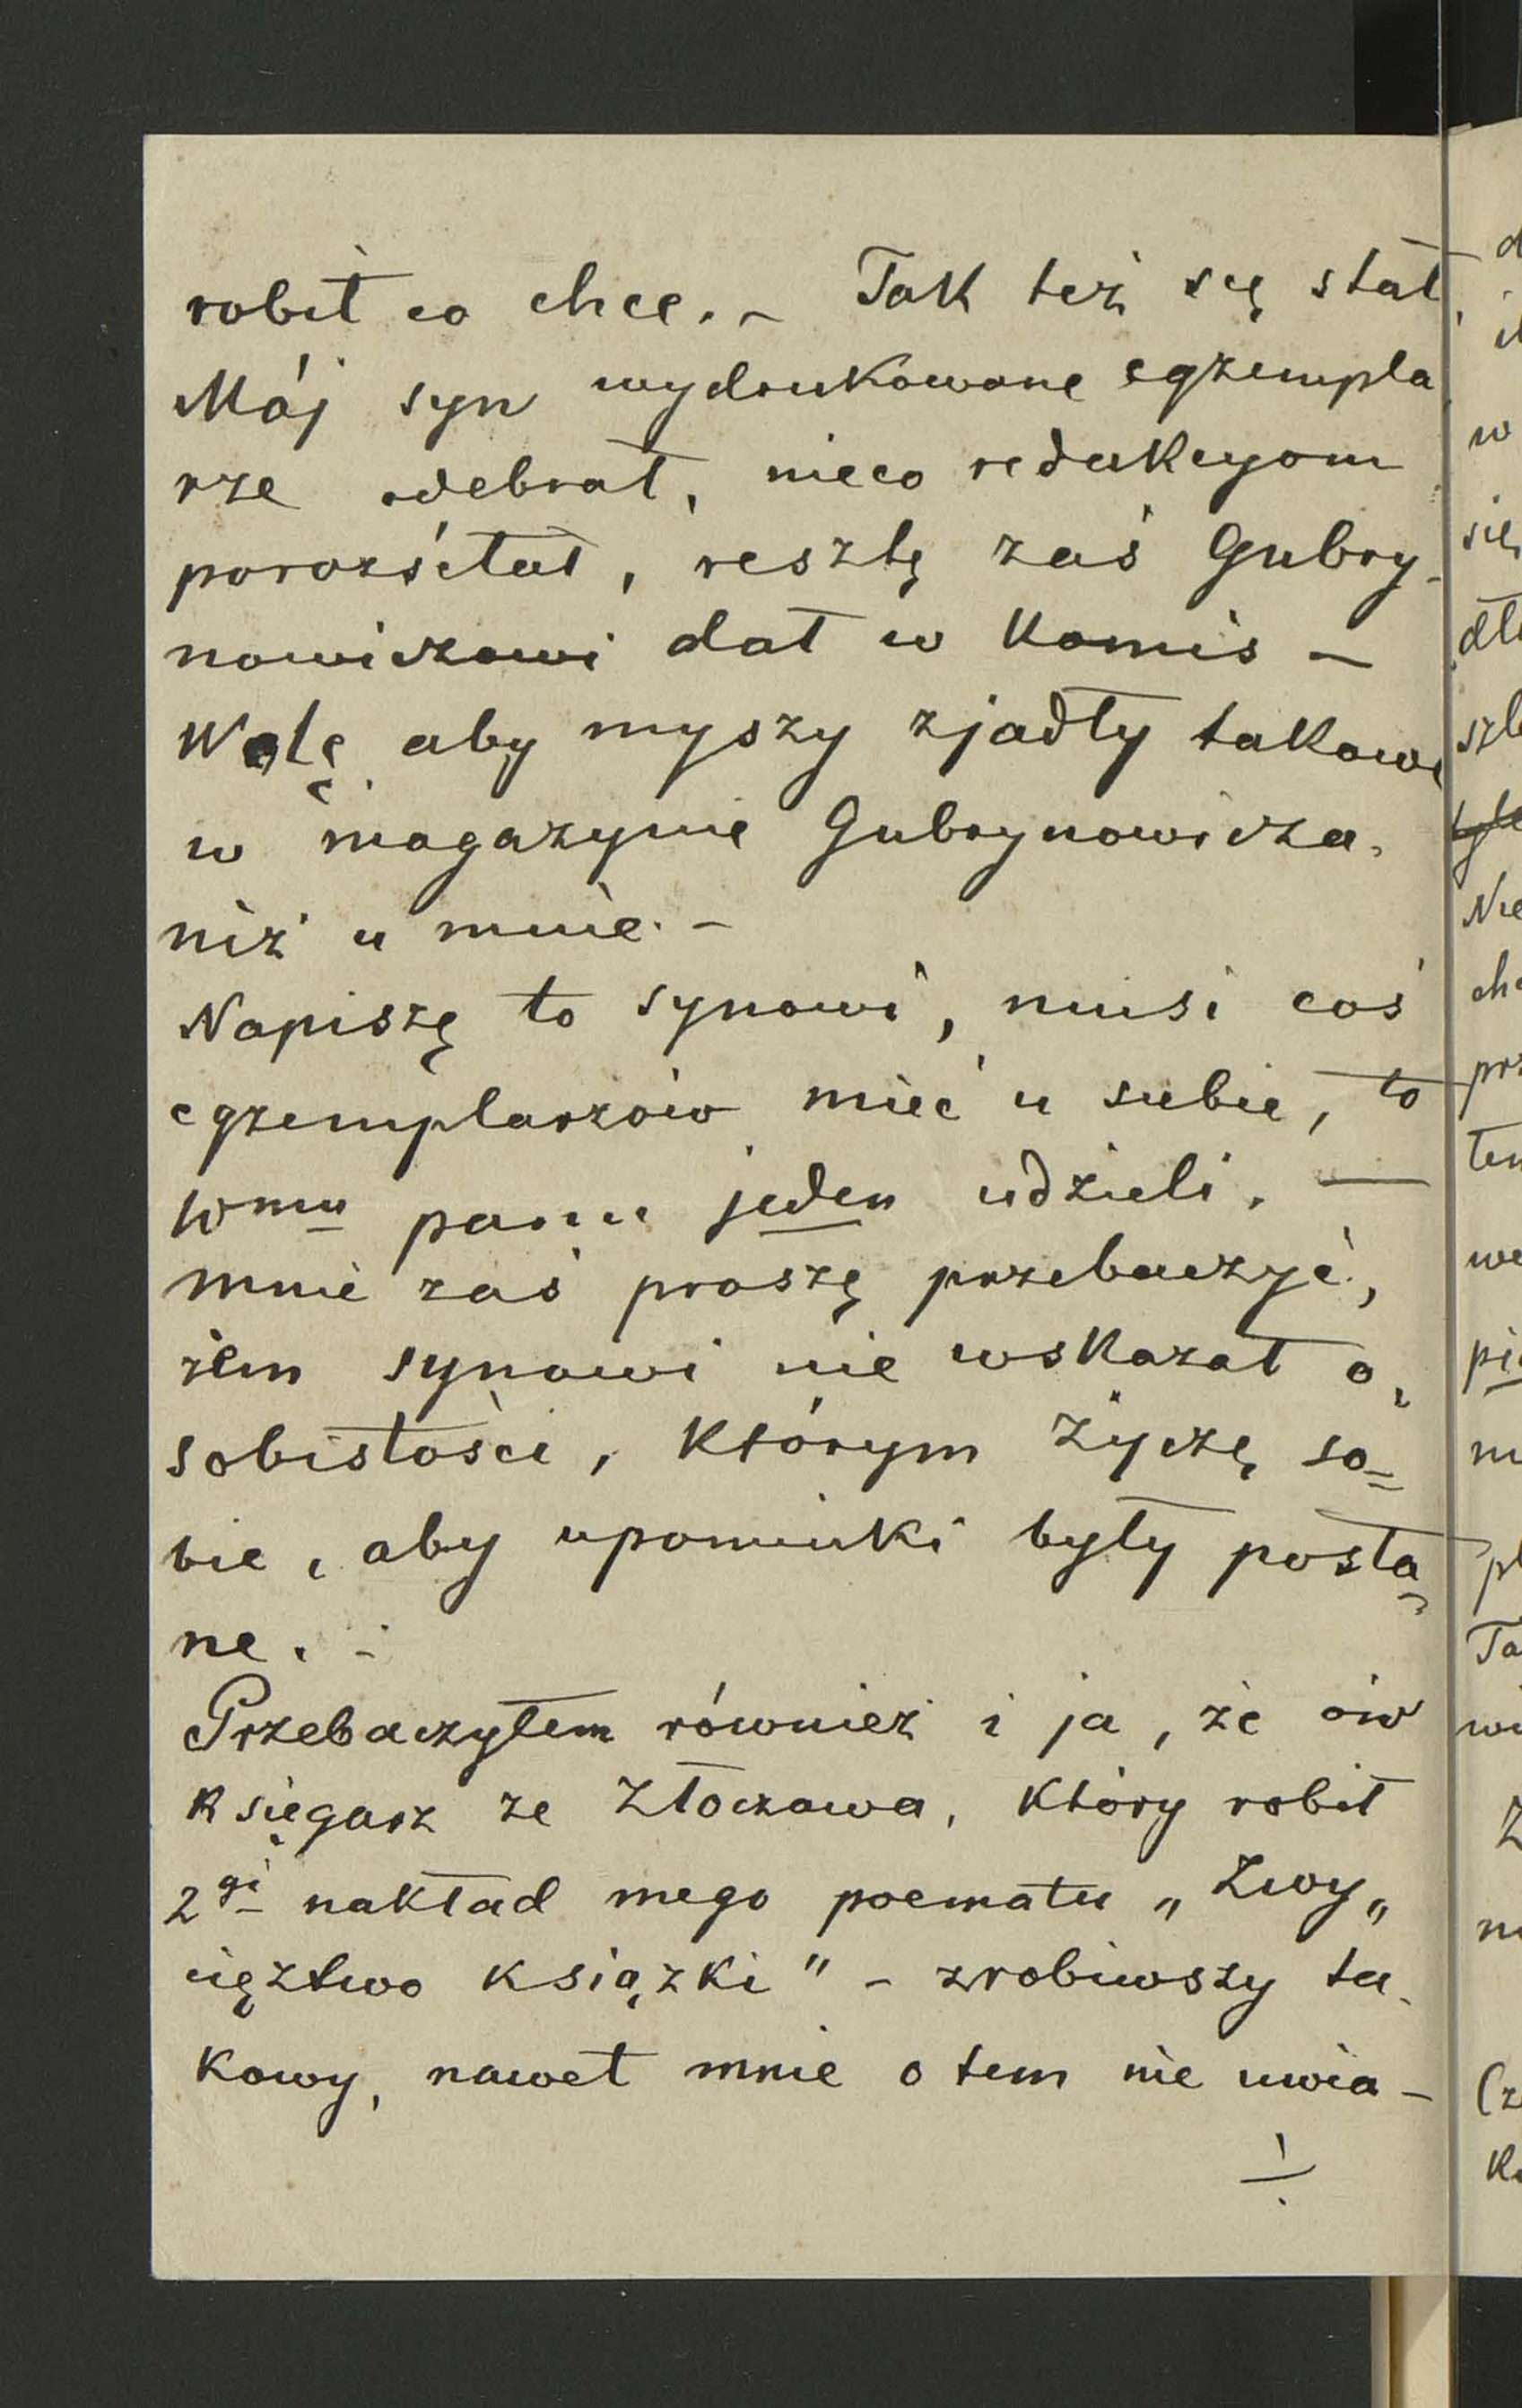 robił co chce. – Tak też się stał
Mój syn wydrukowane egzempla
rze odebrał, nieco redakcyom
porozsełał, resztę zaś Gubry-
nowiczowi dał w komis –
Wolę aby myszy zjadły takowe
w magazynie Gubrynowicza,
niż u mnie. –
Napiszę to synowi, musi coś
egzemplarzów mieć u siebie, to
Wmu panu jeden udzieli. —
mnie zaś proszę przebaczyć,
żem synowi nie wskazał o,
sobistości, którym życzę so=
bie, aby upominki były posła-
ne. -
Przebaczyłem również i ja, że ów
księgarz ze Złoczowa, który robił
2gi nakład mego poematu „Zwy„
cięztwo książki" – zrobiwszy ta-
kowy, nawet mnie o tem nie uwia-
./.
d
w
się
dł
szl
Nie
ch
prz
ten
we
pi
pl
Ta
wi
Z
(z